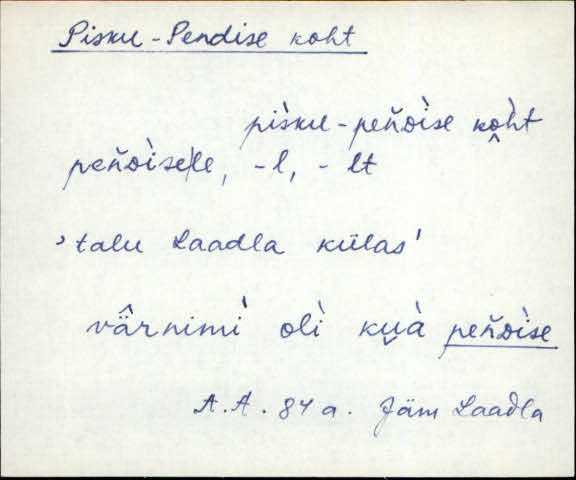 Pisku-Pendise koht
pìsku-peǹ̆ᴅìse kò̭ht
peǹ̆ᴅìse|le, -l, -lt
'talu Laadla külas'
vä̂rnimì olì ku̬à peǹ̆ᴅìse
A.A. 84 a. Jäm Laadla